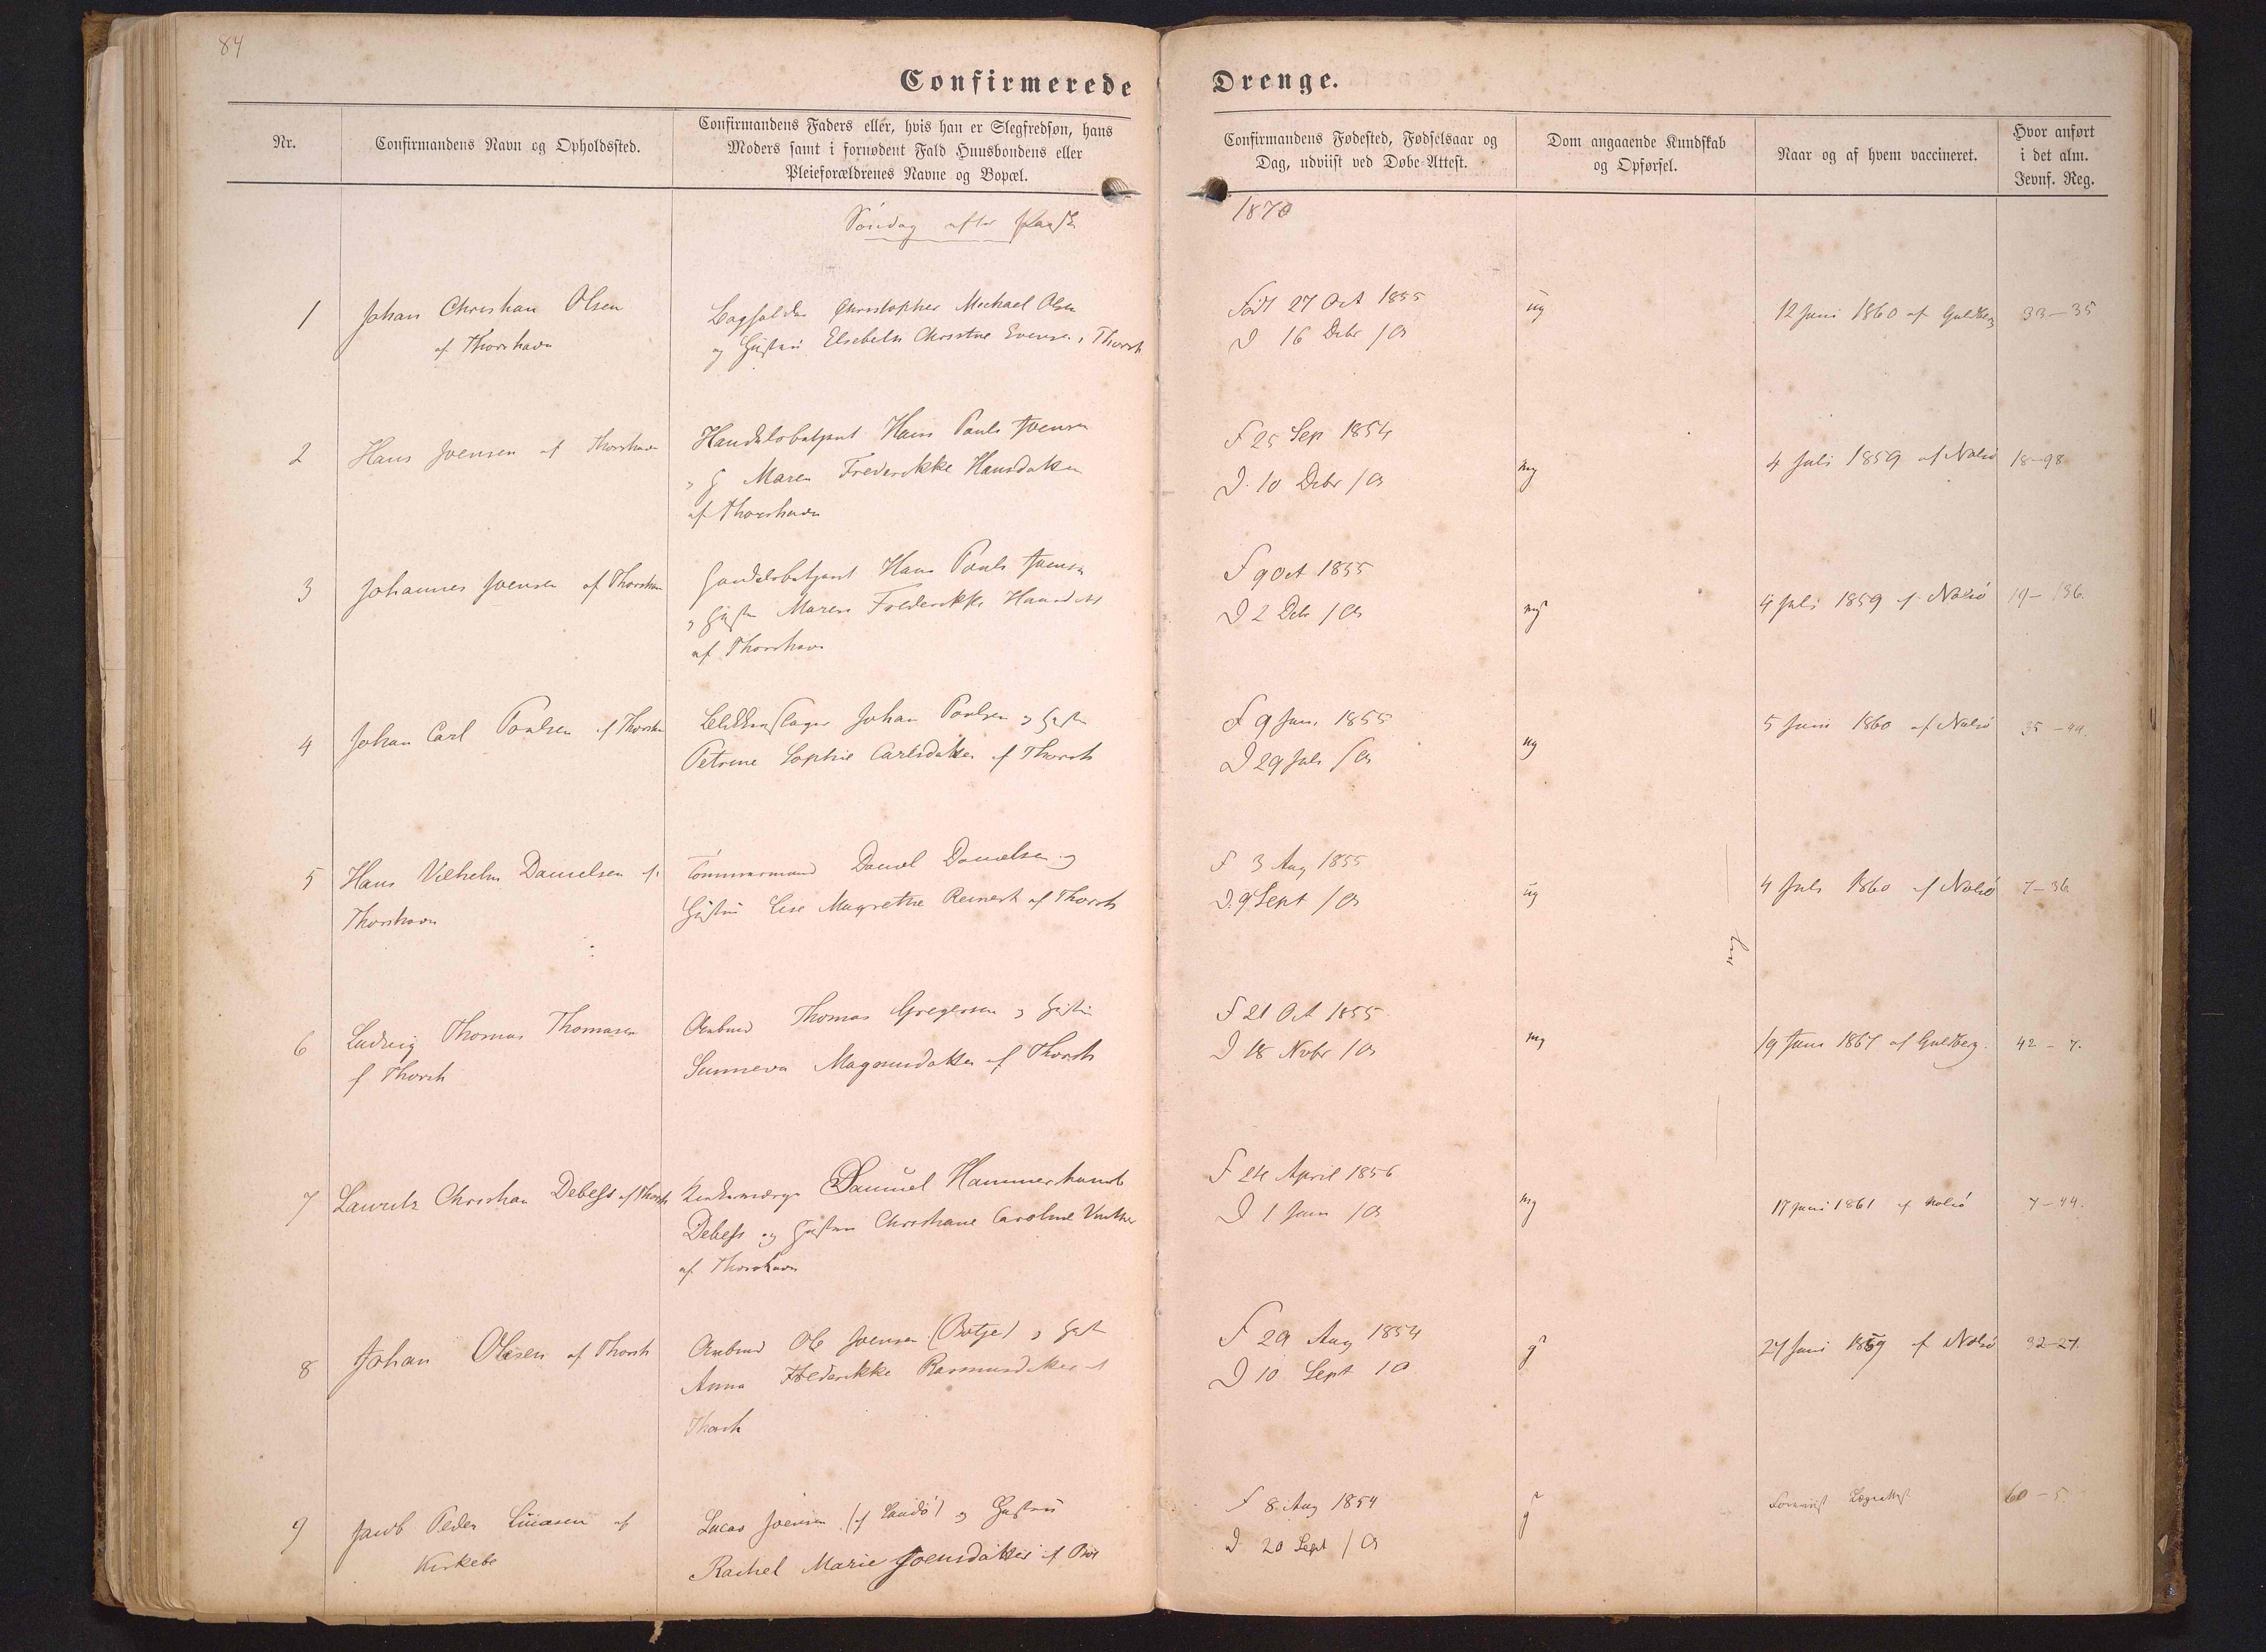 84
Confirmerede Drenge.
Nr.
Confirmandens Navn og Opholdssted.
Confirmandens Faders eller, hvis han er Slegfredsøn, hans
Moders samt i fornødent Fald Huusbondens eller
Pleieforældrenes Navne og Bopæl.
Confirmandens Fødested, Fødselsaar og
Dag, udviist ved Døbe-Attest.
Dom angaaende Kundskab
og Opførsel.
Naar og af hvem vaccineret.
Hvor anført
i det alm.
Jevnf. Reg.
Søndag after Paaske 1870
1
Johan Christian Olsen
af Thorshavn
Christopher Michael Olsen
og Hustru Elsebeth Christine Evensen i Thorsh
Født 27 Oct 1855
D 16 Debr
ug
12 Juni 1860 af Guldberg
33-35
2
Hans Joensen af Thorshavn
Handelsbetjent Hans Pauli Joensen
og H Maren Frederikke Hansdatter
af Thorshavn
F 25 Sep 1854
D. 10 Debr
mg
4 Juli 1859 af Nolsø
18-98
3
Johannes Joensen af Thorshavn
Handelsbetjent Hans Pauli Joensen
og Hustru Maren Frederikke Hansdatt
af Thorshavn
F 9 Oct 1855
D 2 Debr
mg
4 Juli 1859 af Nolsø
19-136.
4
Johan Carl Poulsen af Thorshn
Blikkenslager Johan Poulsen og Hustr
Petrine Sophie Carlsdatter af Thorsh
F 9 Juni 1855
D 29 Juli
ug
5 Juni 1860 af Nolsø
35-44.
5
Hans Vilhelm Danielsen af
Thorshavn
Tømmermand Daniel Danielsen og
Hustru Lise Magrethe Reinert af Thorsh
F 3 Aug 1855
D. 9 Sept
ug
4 Juli 1860 af Nolsø
7-36
6
Ludvig Thomas Thomasen
af Thorsh
Arbmd Thomas Gregersen og Hustru
Sunneva Magnusdatter af Thorsh
F 21 Oct 1855
D 18 Novbr
mg
19 Juni 1867 af Guldberg.
42-7.
7
Lauritz Christian Debess af Thorsh
Samuel Hammershaimb
Debess og Hustru Christiane Caroline Vinther
af Thorshavn
F 24 April 1856
D 1 Juni
mg
17 Juni 1861 af Nolsø
7-44.
8
Johan Olesen af Thorsh
Arbmd Ole Joensen (Botje) og Hustr
Anna Frederikke Rasmusdatter af
Thorsh
F 29 Aug 1854
D 10 Sept
g
24 Juni 1859 af Nolsø
32-27.
9
Jacob Peder Lucasen af
Kirkebø
Lucas Joensen (af Sandø) og Hustru
Rachel Marie Joensdatter af
F 8 Aug 1854
D 20 Sept
g
60-5